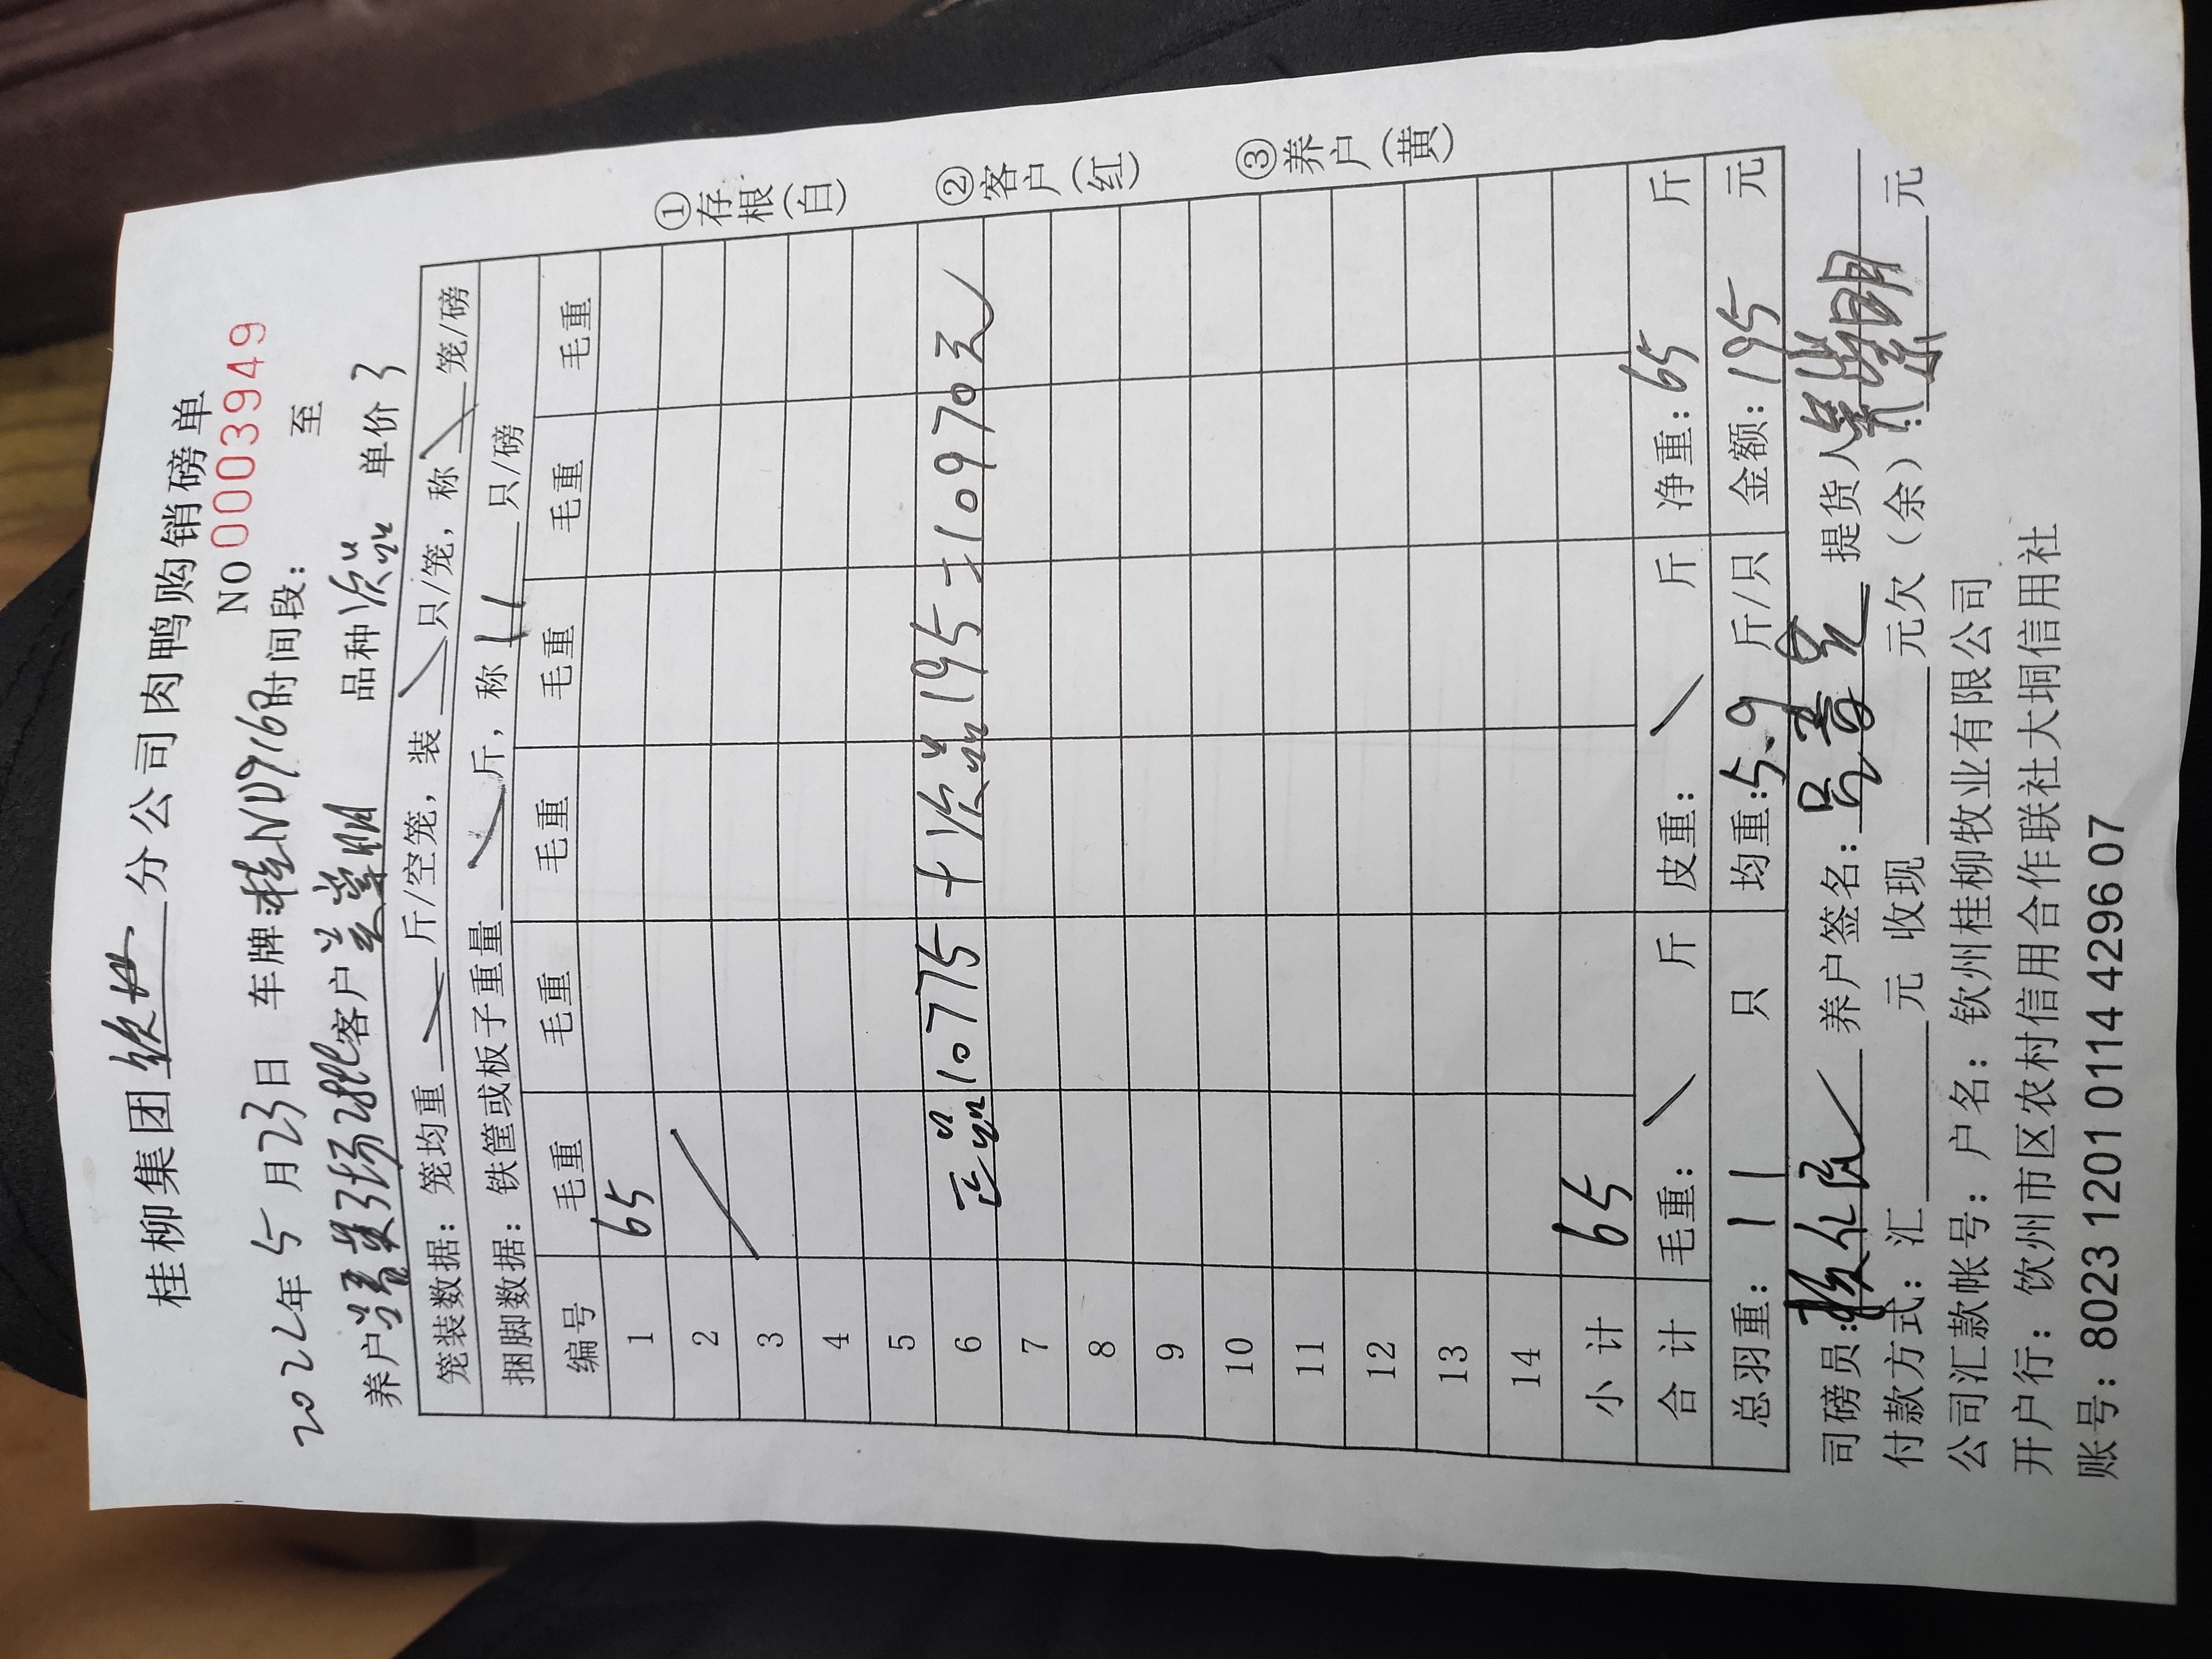 桂柳集团 钦州 分公司肉鸭购销磅单
NO 0003949
2022年 5 月 23 日 车牌:桂ND9168 时间段: 至
养户 客户 品种 次品 单价 3
笼装数据: 笼均重 斤/空笼, 装 只/笼, 称 笼/磅
捆脚数据: 铁筐或板子重量 斤, 称 11 只/磅
编号 毛重 毛重 毛重 毛重 毛重 毛重
1 65
2
3
4
5
6 正品10775+次品195=10970元
7
8
9
10
11
12
13
14
小计 65
合计 毛重: 斤 皮重: 斤 净重: 65 斤
总羽重: 11 只 均重: 5.9 斤/只 金额: 195 元
司磅员: 养户签名: 提货人:
付款方式: 汇 元 收现 元欠(余) 元
公司汇款帐号: 户名: 钦州桂柳牧业有限公司
开户行: 饮州市区农村信用合作联社大垌信用社
账号: 8023 1201 0114 4296 07
①存根(白)
②客户(红)
③养户(黄)